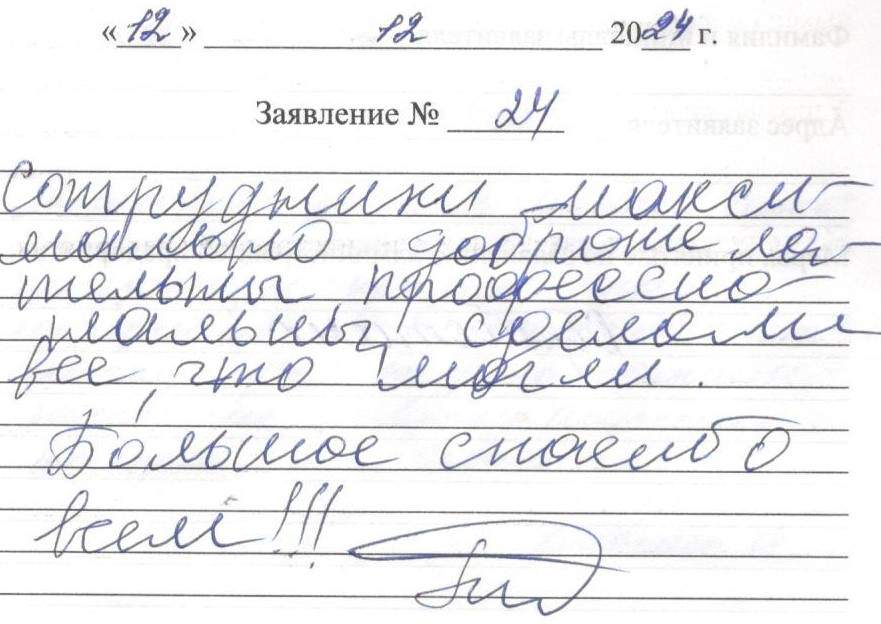 « 12 » 12 2024 г.
Заявление № 24
Сотрудники макси-
мально доброжела-
тельны, профессио-
нальны, сделали
все, что могли.
Большое спасибо
всем!!!